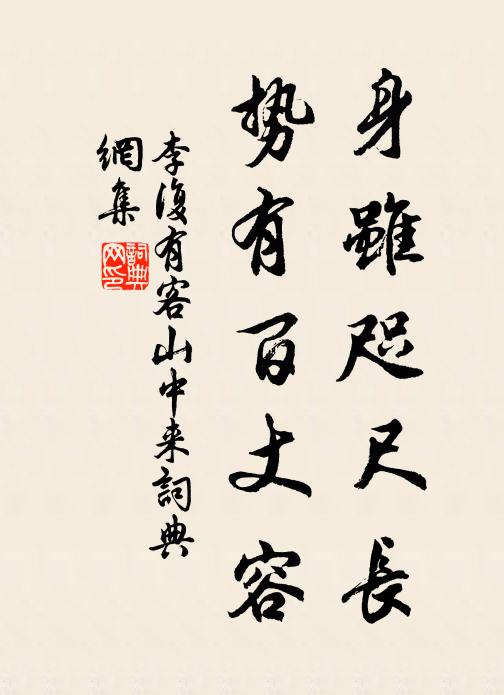 身雖咫尺長
勢有百丈容
李復有客山中来詞典
網集
詞典
网印